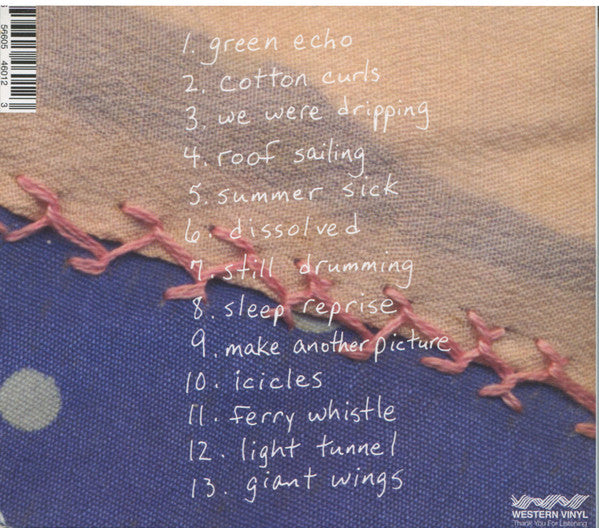 56605 46012 3
1. green echo
2. cotton curls
3. we were dripping
4. roof sailing
5. summer sick
6. dissolved
7. still drumming
8. sleep reprise
9. make another picture
10. icicles
11. ferry whistle
12. light tunnel
13. giant wings
WESTERN VINYL
Thank You For Listening